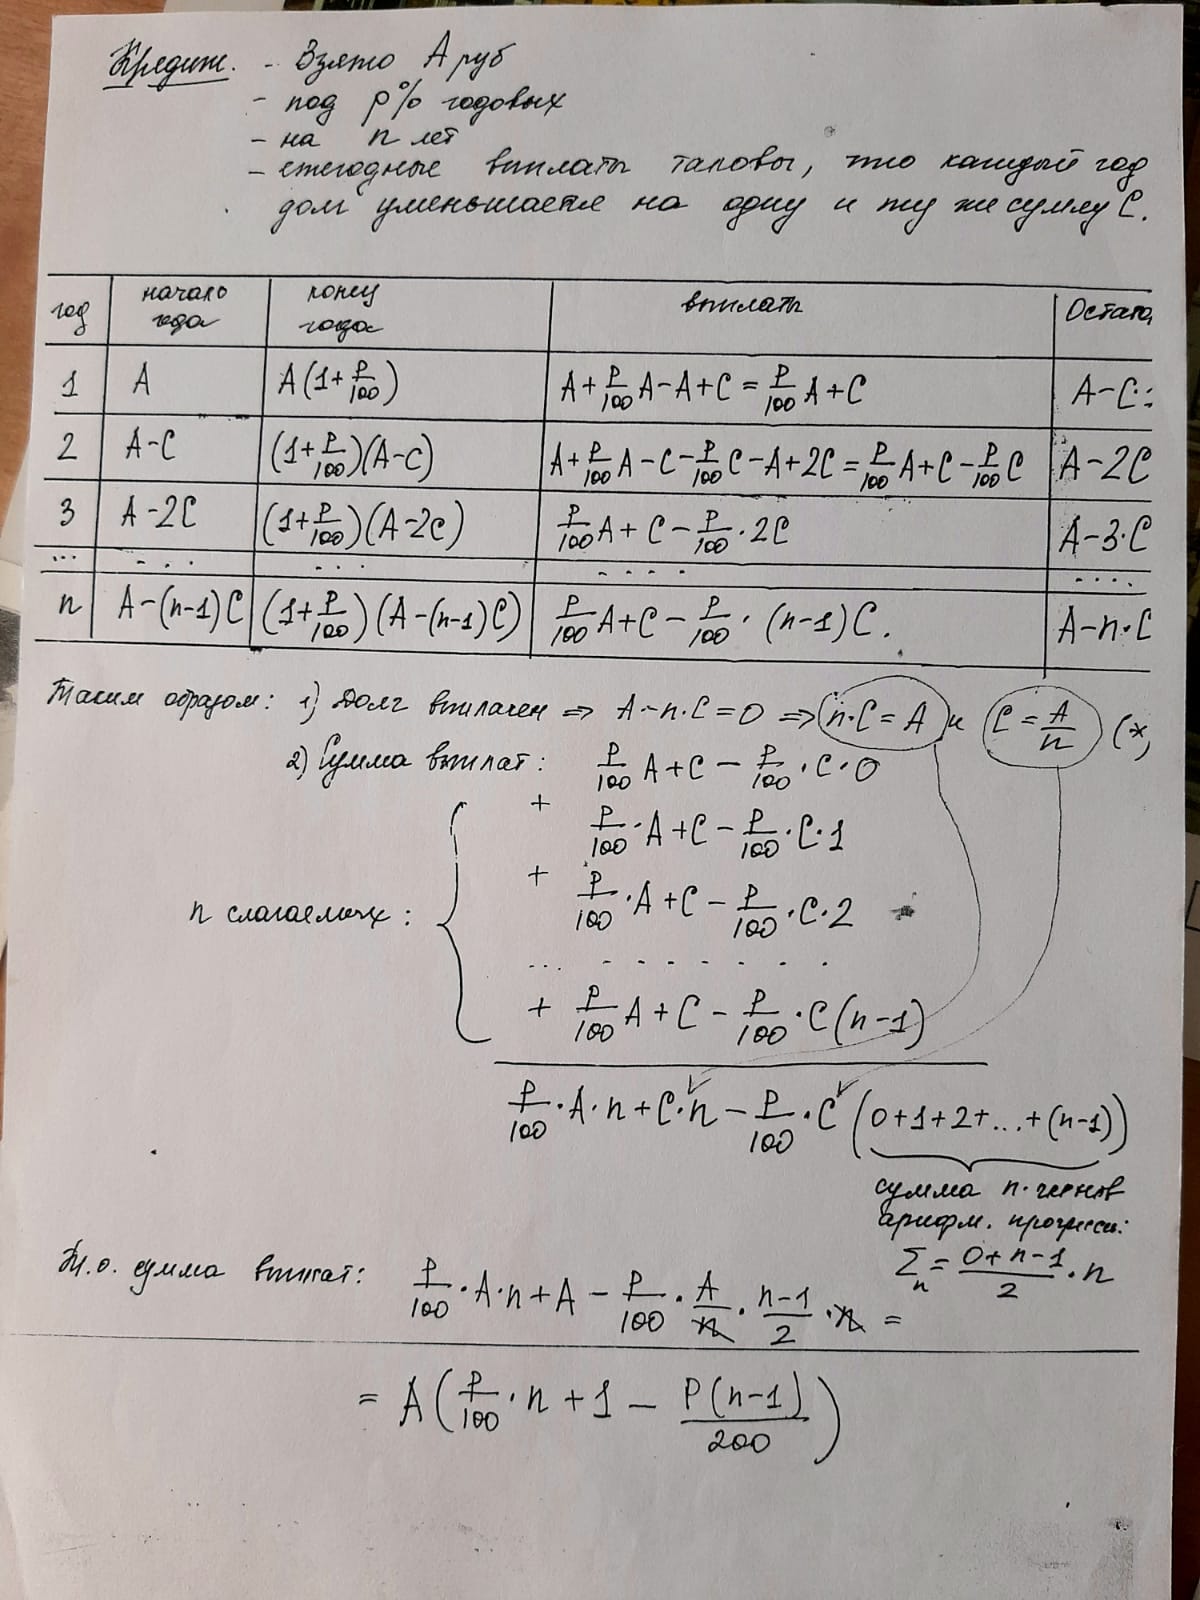 Кредит. - Взято A руб
- под p% годовых
- на n лет
- ежегодные выплаты таковы, что каждый год
долг уменьшается на одну и ту же сумму C.
год | начало года | конец года | выплаты | Остато
1 | A | A(1+P/100) | A+P/100 A-A+C=P/100 A+C | A-C
2 | A-C | (1+P/100)(A-C) | A+P/100 A-C-P/100 C-A+2C=P/100 A+C-P/100 C | A-2C
3 | A-2C | (1+P/100)(A-2C) | P/100 A+C-P/100·2C | A-3·C
... | ... | ... | .... | ....
n | A-(n-1)C | (1+P/100)(A-(n-1)C) | P/100 A+C-P/100·(n-1)C. | A-n·C
Таким образом: 1) Долг выплачен => A-n·C=0 => n·C=A и C=A/n (*)
2) Сумма выплат: P/100 A+C-P/100·C·0
+ P/100·A+C-P/100·C·1
n слагаемых: + P/100·A+C-P/100·C·2
... - - - - - - -
+ P/100 A+C-P/100·C(n-1)
P/100·A·n+C·n-P/100·C(0+1+2+...+(n-1))
сумма n членов
арифм. прогресси:
Σn=(0+n-1)/2·n
Т.о. сумма выплат: P/100·A·n+A-P/100·A/n·(n-1)/2·n=
=A(P/100·n+1-P(n-1)/200)